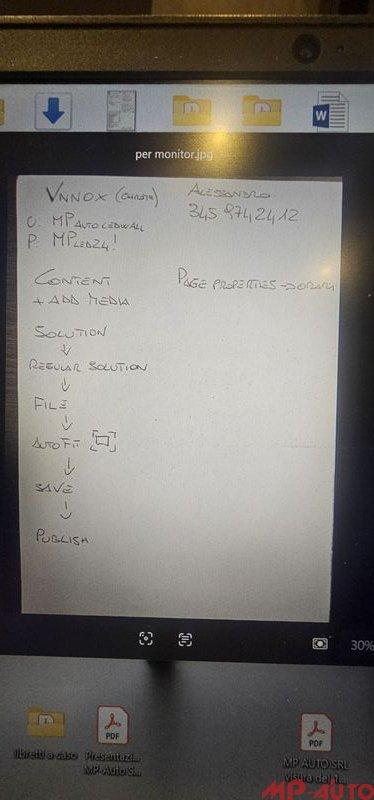 per monitor.jpg
VNNOX (CARETA)
ALESSANDRO
345 8742412
U: MPAUTOLEDWALL
P: MPLED24!
CONTENT
+ ADD MEDIA
PAGE PROPERTIES → DORARI
SOLUTION
↓
REGULAR SOLUTION
↓
FILE
↓
AUTOFIT
↓
SAVE
↓
PUBLISH
30%
libretti a caso
Presentazi...
MP-Auto S...
MP AUTO SRL
visura del 1...
MP-AUTO